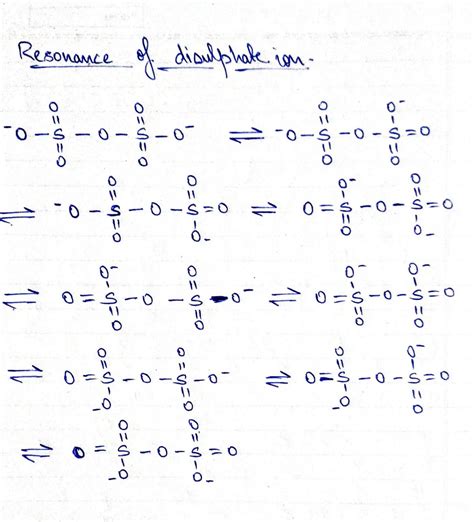 Resonance of disulphate ion.
O O O O⁻
⁻O – S – O – S – O⁻ ⇌ ⁻O – S – O – S = O
O O O O
O O O⁻ O
⇌ ⁻O – S – O – S = O ⇌ O = S – O – S = O
O O⁻ O O⁻
O⁻ O O⁻ O⁻
⇌ O = S – O – S – O⁻ ⇌ O = S – O – S = O
O O O O
O O O O⁻
⇌ O = S – O – S – O⁻ ⇌ O = S – O – S = O
⁻O O ⁻O O
O O
⇌ O = S – O – S = O
⁻O O⁻